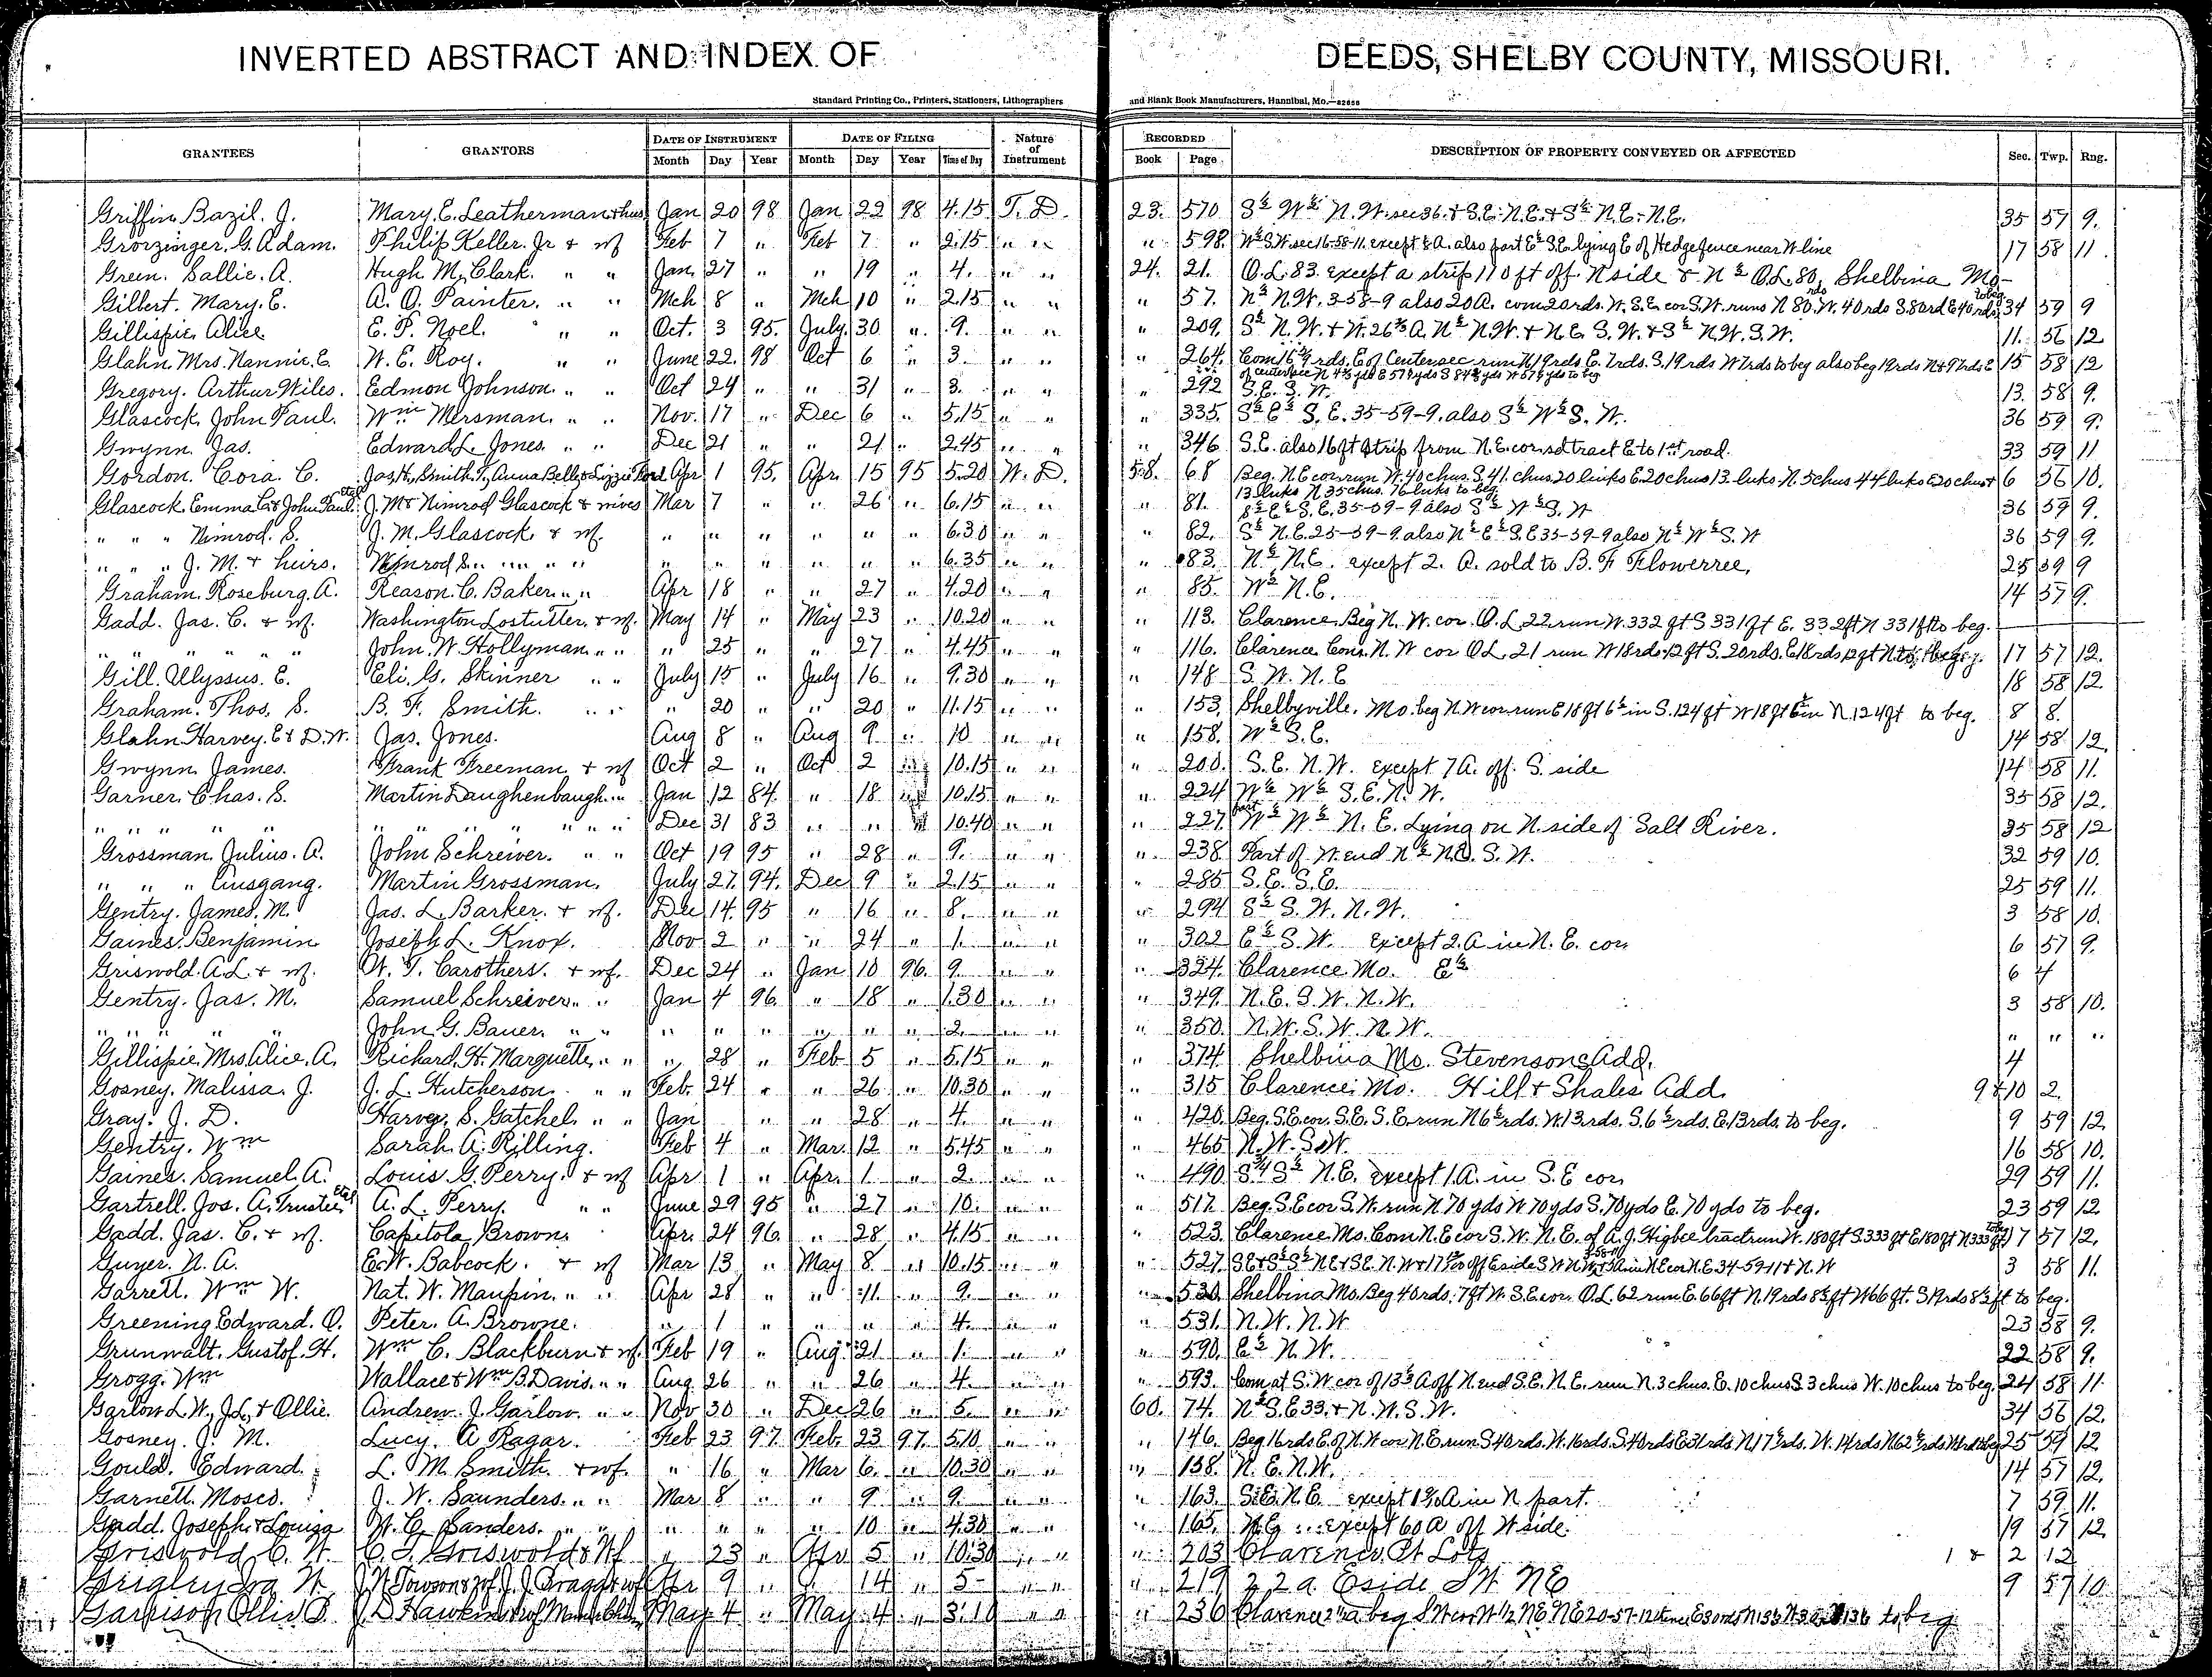 INVERTED ABSTRACT AND INDEX OF DEEDS, SHELBY COUNTY, MISSOURI.
Standard Printing Co., Printers, Stationers, Lithographers and Blank Book Manufacturers, Hannibal, Mo.—82656
GRANTEES GRANTORS DATE OF INSTRUMENT DATE OF FILING Nature of Instrument RECORDED DESCRIPTION OF PROPERTY CONVEYED OR AFFECTED Sec. Twp. Rng.
Month Day Year Month Day Year Time of Day Book Page
Griffin Bazil. J. Mary. E. Leatherman & hus Jan 20 98 Jan 22 98 4.15 T. D. 23. 570 S½ W½ N.W. sec 36. & S.E. N.E. & S½ N.E.-N.E. 35 57 9.
Grorzinger, G. Adam. Philip Keller. Jr & wf Feb 7 " Feb 7 " 2.15 " " " 598. W½ S.W. sec 16-58-11. except ½ A. also part E½ S.E. lying E of Hedge fence near W line 17 58 11.
Green. Sallie. A. Hugh M. Clark. " " Jan. 27 " " 19 " 4. " " 24. 21. O.L. 83. except a strip 110 ft off N side & N½ O.L. 80, Shelbina Mo-
Gilbert. Mary. E. A. O. Painter. " " Mch 8 " Mch 10 " 2.15 " " " 57. N½ N.W. 3-58-9 also 20 A. com 20 rds. W. S.E. cor S.W. runs N 80 rds W. 40 rds S. 80 rd E 40 rds to beg 34 59 9
Gillispie, Alice E. P. Noel. " " Oct. 3 95. July. 30 ". 9. " " " 209. S½ N.W. & W. 26⅔ A. N½ N.W. & N.E. S.W. & S½ N.W. S.W. 11. 56 12
Glahn Mrs. Nannie. E. W. E. Roy. " " June 22. 98 Oct 6 " 3. " " " 264. Com 16 rds. E. of Center sec run N 19 rds E. 7 rds. S. 19 rds W 7 rds to beg also beg 19 rds N & 9 rds E 15 58 12
of center sec N yds E 57 yds S 84 yds W 57 yds to beg
Gregory. Arthur Wiles. Edmon Johnson. " " Oct 24 " " 31 " 3. " " " 292 S.E. S.W. 13. 58 9.
Glascock, John Paul. Wm Mersman. " " Nov. 17 " Dec 6 " 5.15 " " " 335. S½ E½ S.E. 35-59-9. also S½ W½ S.W. 36 59 9.
Gwynn. Jas. Edward L. Jones. " " Dec 21 " " 21 " 2.45 " " " 346 S.E. also 16 ft strip from N.E. cor sd tract E to 1st road. 33 59 11
Gordon. Cora. C. Jas. H. Smith. T., Anna Belle & Lizzie Ford Apr 1 95. Apr. 15 95 5.20 W. D. 58. 68 Beg. N.E cor run W. 40 chus. S. 41. chus. 20 links E. 20 chus 13. links N. 5 chus 44 links E 20 chus & 6 56 10.
13 links N 35 chus. 76 links to beg.
Glascock, Emma C. & John Paul. etal J. M & Nimrod Glascock & wives Mar 7 " " 26 " 6.15 " " " 81. S½ E½ S.E. 35-59-9 also S½ W½ S.W 36 59 9.
" " " Nimrod. S. J. M. Glascock, & wf. " " " " " " 6.30 " " " 82. S½ N.E. 25-59-9. also N½ E½ S.E 35-59-9 also N½ W½ S.W 36 59 9.
" " " J. M. & heirs. Nimrod S. " " " " " " " " " 6.35 " " " 83. N½ N.E. except 2. A. sold to B. F. Flowerree, 25 59 9
Graham. Roseburg. A. Reason. C. Baker " " Apr 18 " " 27 " 4.20 " " " 85. W½ N.E. 14 57 9.
Gadd. Jas. C. & wf. Washington Lostutter. & wf. May 14 " May 23 " 10.20 " " " 113. Clarence, Beg N.W. cor. O.L. 22. run W. 332 ft S 331 ft E. 332 ft N 331 ft to beg.
" " " " " John. W. Hollyman " " " 25 " " 27 " 4.45 " " " 116. Clarence Com. N.W cor O.L. 21 run W 18 rds. 12 ft S. 20 rds. E 18 rds 12 ft N to beg. 17 57 12.
Gill. Ulyssus. E. Eli. G. Skinner " " July 15 " July 16 " 9.30 " " " 148 S.W. N.E 18 58 12.
Graham. Thos. S. B. F. Smith. " " " 20 " " 20 " 11.15 " " " 153. Shelbyville. Mo. beg N.W cor run E 18 ft 6½ in S. 124 ft W 18 ft 6½ in N. 124 ft to beg. 8 8.
Glahn Harvey. E & D. W. Jas. Jones. Aug 8 " Aug 9 " 10 " " " 158. W½ S.E. 14 58 12.
Gwynn James. Frank Freeman & wf Oct 2 " Oct 2 " 10.15 " " " 200. S.E. N.W. except 7 A. off. S. side 14 58 11.
Garner. Chas. S. Martin Daughenbaugh. " " Jan 12 84. " 18 " 10.15 " " " 224 W½ W½ S.E. N.W. 35 58 12.
" " " " " " " " " Dec 31 83 " " " 10.40 " " " 227. part W½ W½ N.E. Lying on N. side of Salt River. 35 58 12
Grossman, Julius. A. John Schreiver. " " Oct 19 95 " 28 " 9. " " " 238 Part of W. end N½ N.E. S.W. 32 59 10.
" " " Ausgang. Martin Grossman. July 27. 94. Dec 9 " 2.15 " " " 285 S.E. S.E. 25 59 11.
Gentry. James. M. Jas. L. Barker. & wf. Dec 14. 95 " 16 " 8. " " " 294 S½ S.W. N.W. 3 58 10.
Gaines. Benjamin Joseph L. Knox. Nov 2 " " 24 " 1. " " " 302 E½ S.W. except 2. A in N.E. cor. 6 57 9.
Griswold. A.L. & wf. W. T. Carothers. & wf. Dec 24 " Jan 10 96. 9 " " " 324. Clarence Mo. E½ 6 4
Gentry. Jas. M. Samuel Schreiver. " " Jan 4 96. " 18 " 1.30 " " " 349. N.E. S.W. N.W. 3 58 10.
" " " " John. G. Bauer. " " " " " " " " 2. " " " 350. N.W. S.W. N.W. " " "
Gillispie, Mrs Alice. A. Richard. H. Marquette, " " " 28 " Feb 5 " 5.15 " " " 374. Shelbina Mo. Stevensons Add. 4
Gosney. Malissa. J. J. L. Hutcherson. " " Feb. 24 " " 26 " 10.30 " " " 315 Clarence. Mo. Hill & Shales Add 9 & 10 2.
Gray. J. D. Harvey. S. Gatchel. " " Jan " " 28 " 4. " " " 420. Beg. S.E. cor. S.E. S.E. run N 6½ rds. W. 13. rds. S. 6½ rds. E. 13 rds. to beg. 9 59 12.
Gentry. Wm Sarah. A. Rilling. Feb 4 " Mar. 12 " 5.45 " " " 465 N.W. S.W. 16 58 10.
Gaines. Samuel. A. Louis. G. Perry. & wf Apr 1 " Apr. 1 " 2. " " " 490. S¾ S½ N.E. except 1. A. in S.E cor. 29 59 11.
Gartrell. Jos. A. Trustee etal A. L. Perry. " " June 29 95 " 27 " 10. " " " 517. Beg. S.E cor S.W. run N 70 yds W 70 yds S. 70 yds E. 70 yds to beg. 23 59 12.
Gadd. Jas. C. & wf. Capitola Brown. Apr. 24 96. " 28 " 4.15 " " " 523. Clarence Mo. Com N.E cor S.W. N.E. of A. J. Higbee tract run W. 180 ft S. 333 ft E 180 ft N 333 ft to beg 17 57 12.
Guyer. N. A. E. W. Babcock. & wf Mar 13 " May 8 " 10.15 " " " 527. 3 58 11.
Garrett. Wm W. Nat. W. Maupin. " " Apr 28 " " 11 " 9. " " " 530. Shelbina Mo. Beg 40 rds. 7 ft W. S.E cor. O.L. 62 run E. 66 ft N. 19 rds 8½ ft W 66 ft. S 19 rds 8½ ft to beg.
Greening Edward. O. Peter. A. Browne. " 1 " " " " 4. " " " 531. N.W. N.W 23 58 9.
Grunwalt. Gustof. H. Wm C. Blackburn & wf. Feb 19 " Aug. 21 " 1. " " " 590. E½ N.W. 22 58 9.
Grogg. Wm Wallace & Wm B. Davis. " " Aug. 26 " " 26 " 4. " " " 593. Com at S.W cor of 13½ A off N. end S.E. N.E. run N. 3 chus. E. 10 chus S. 3 chus W. 10 chus to beg. 24 58 11.
Garlow L. W., J. L. & Ollie. Andrew. J. Garlow. " " Nov 30 " Dec 26 " 5. " " 60. 74. N½ S.E 33. & N.W. S.W. 34 56 12.
Gosney. J. M. Lucy. A Ragar. Feb 23 97 Feb. 23 97. 5.10 " " " 146. Beg 16 rds E. of N.W cor N.E. run S 40 rds. W. 16 rds. S. 40 rds E 31 rds N 17½ rds. W. 14 rds N 62½ rds to beg 25 59 12
Gould. Edward. L. M. Smith. & wf. " 16 " Mar 6. " 10.30 " " " 158. N.E. N.W. 14 57 12.
Garnett. Moses. J. W. Saunders. " " Mar 8 " " 9 " 9. " " " 163. S.E. N.E. except A in N part. 7 59 11.
Gadd. Joseph. & Louiza W. C. Sanders. " " " " " " 10 " 4.30 " " " 165. N.E. except 60 A off W side. 19 57 12
Griswold C. W. C. T. Griswold & Wf " 23 " Apr 5 " 10:30 " " " 203 Clarence Pt Lots 1 & 2 12
Grigley Ira W. Apr 9 " " 14 " 5- " " " 219 22 a E side S W N E 9 57 10
Garrison Ollie May 4 " May 4 " 3:10 " " " 236 Clarence 2 a beg S W cor W 1/2 NE NE 20-57-12 to beg